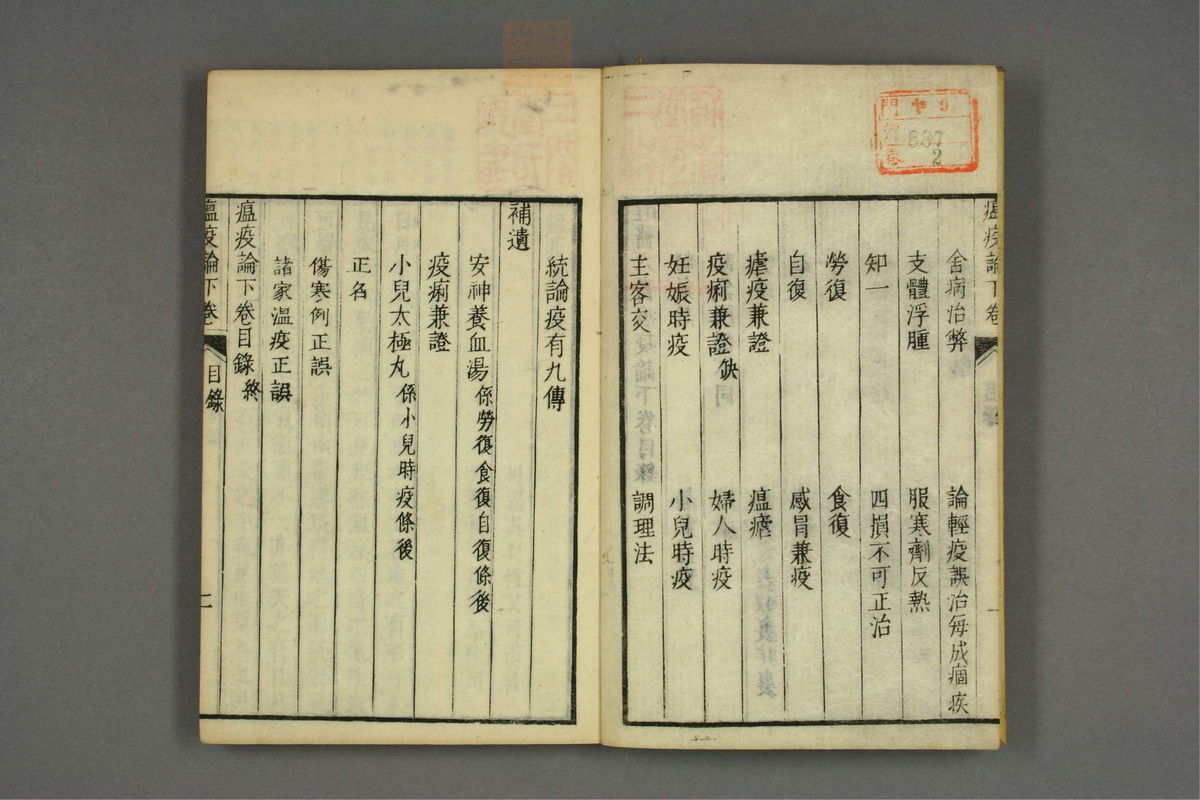 瘟疫論下卷
舍病治弊
論輕疫誤治每成痼疾
支體浮腫
服寒劑反熱
知一
四損不可正治
勞復
食復
自復
感冒兼疫
瘧疫兼證
瘟瘧
疫痢兼證缺
婦人時疫
妊娠時疫
小兒時疫
主客交
調理法
統論疫有九傳
補遺
安神養血湯係勞復食復自復條後
疫痢兼證
小兒太極丸係小兒時疫條後
正名
傷寒例正誤
諸家温疫正誤
瘟疫論下卷目錄終
瘟疫論下卷
目錄
二
門 9
號 837
卷 2